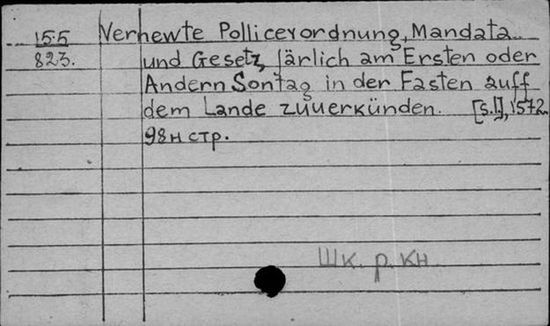 15.5 Verhewte Pollicerordnung, Mandata
823. und Gesetz, Järlich am Ersten oder
Andern Sontag in der Fasten auff
dem Lande zuuerkünden. [s.l], 1572.
98н стр.
Шк. р. кн